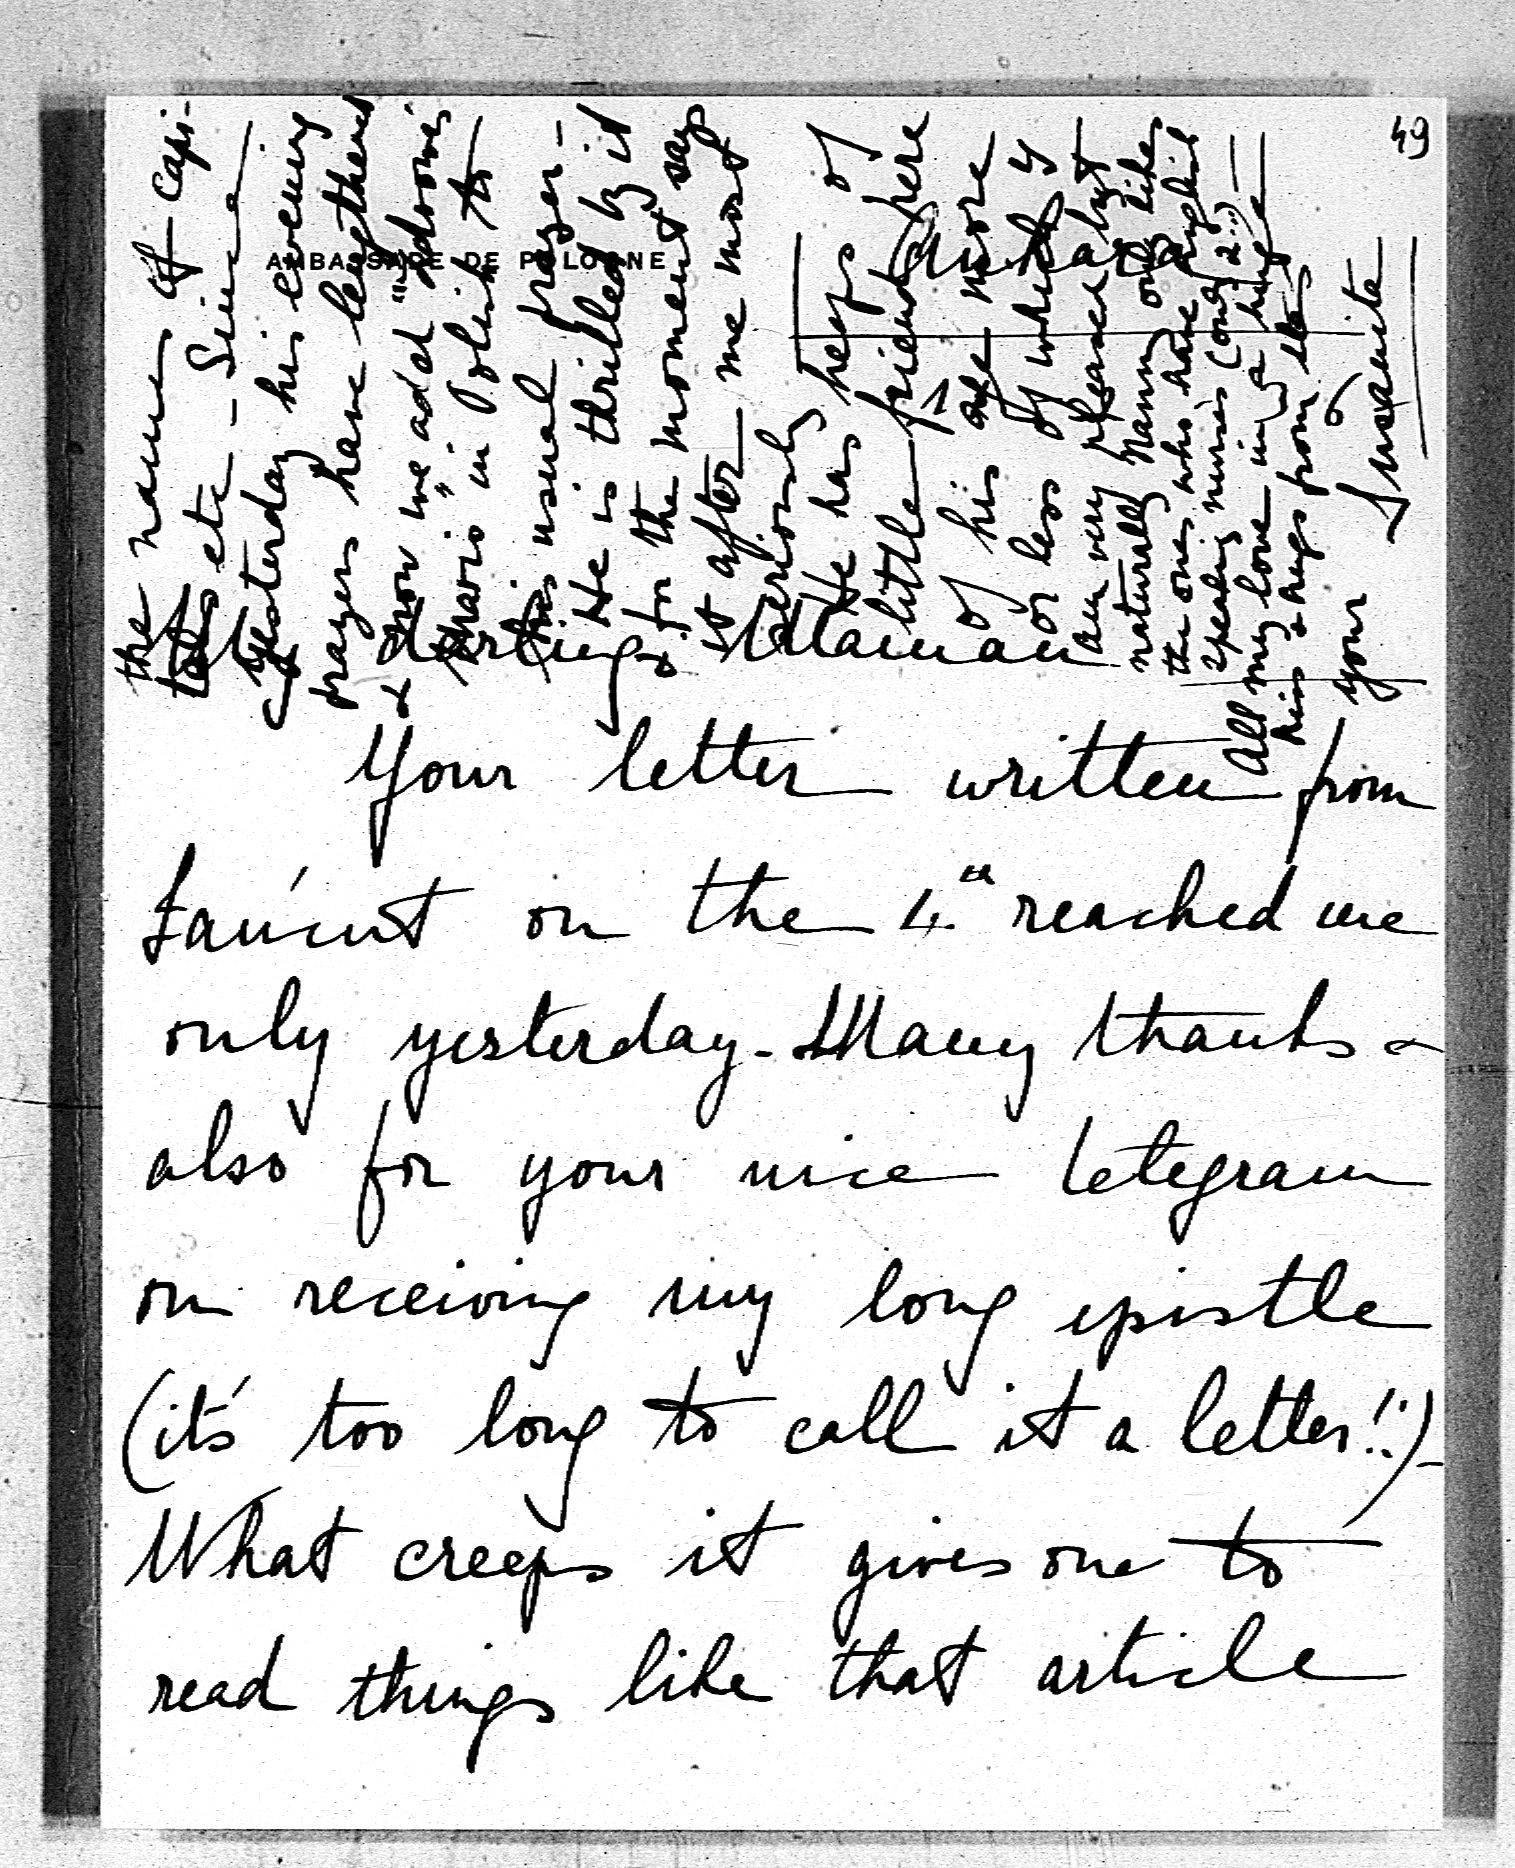 49
AMBASSADE DE POLOGNE
Ankara
My darling Maman
Your letter written from
Łańcut on the 4th reached me
only yesterday - Many thanks &
also for your nice telegram
on receiving my long epistle
(it's too long to call it a letter!!) -
What creeps it gives one to
read things like that article
the names of capi-
tals etc - Since
yesterday his evening
prayers have lengthened
& now we add "Zdrowaś
Maria" in Polish to
his usual prayer -
He is thrilled by it
& for the moment says
it after me most
seriously
He has heaps of
little friends here
of his age more
or less of which I
am very pleased but
naturally Nanny only likes
the ones who have english
speaking nurses (only 2!!) -
All my love and a huge
kiss & hugs from
your